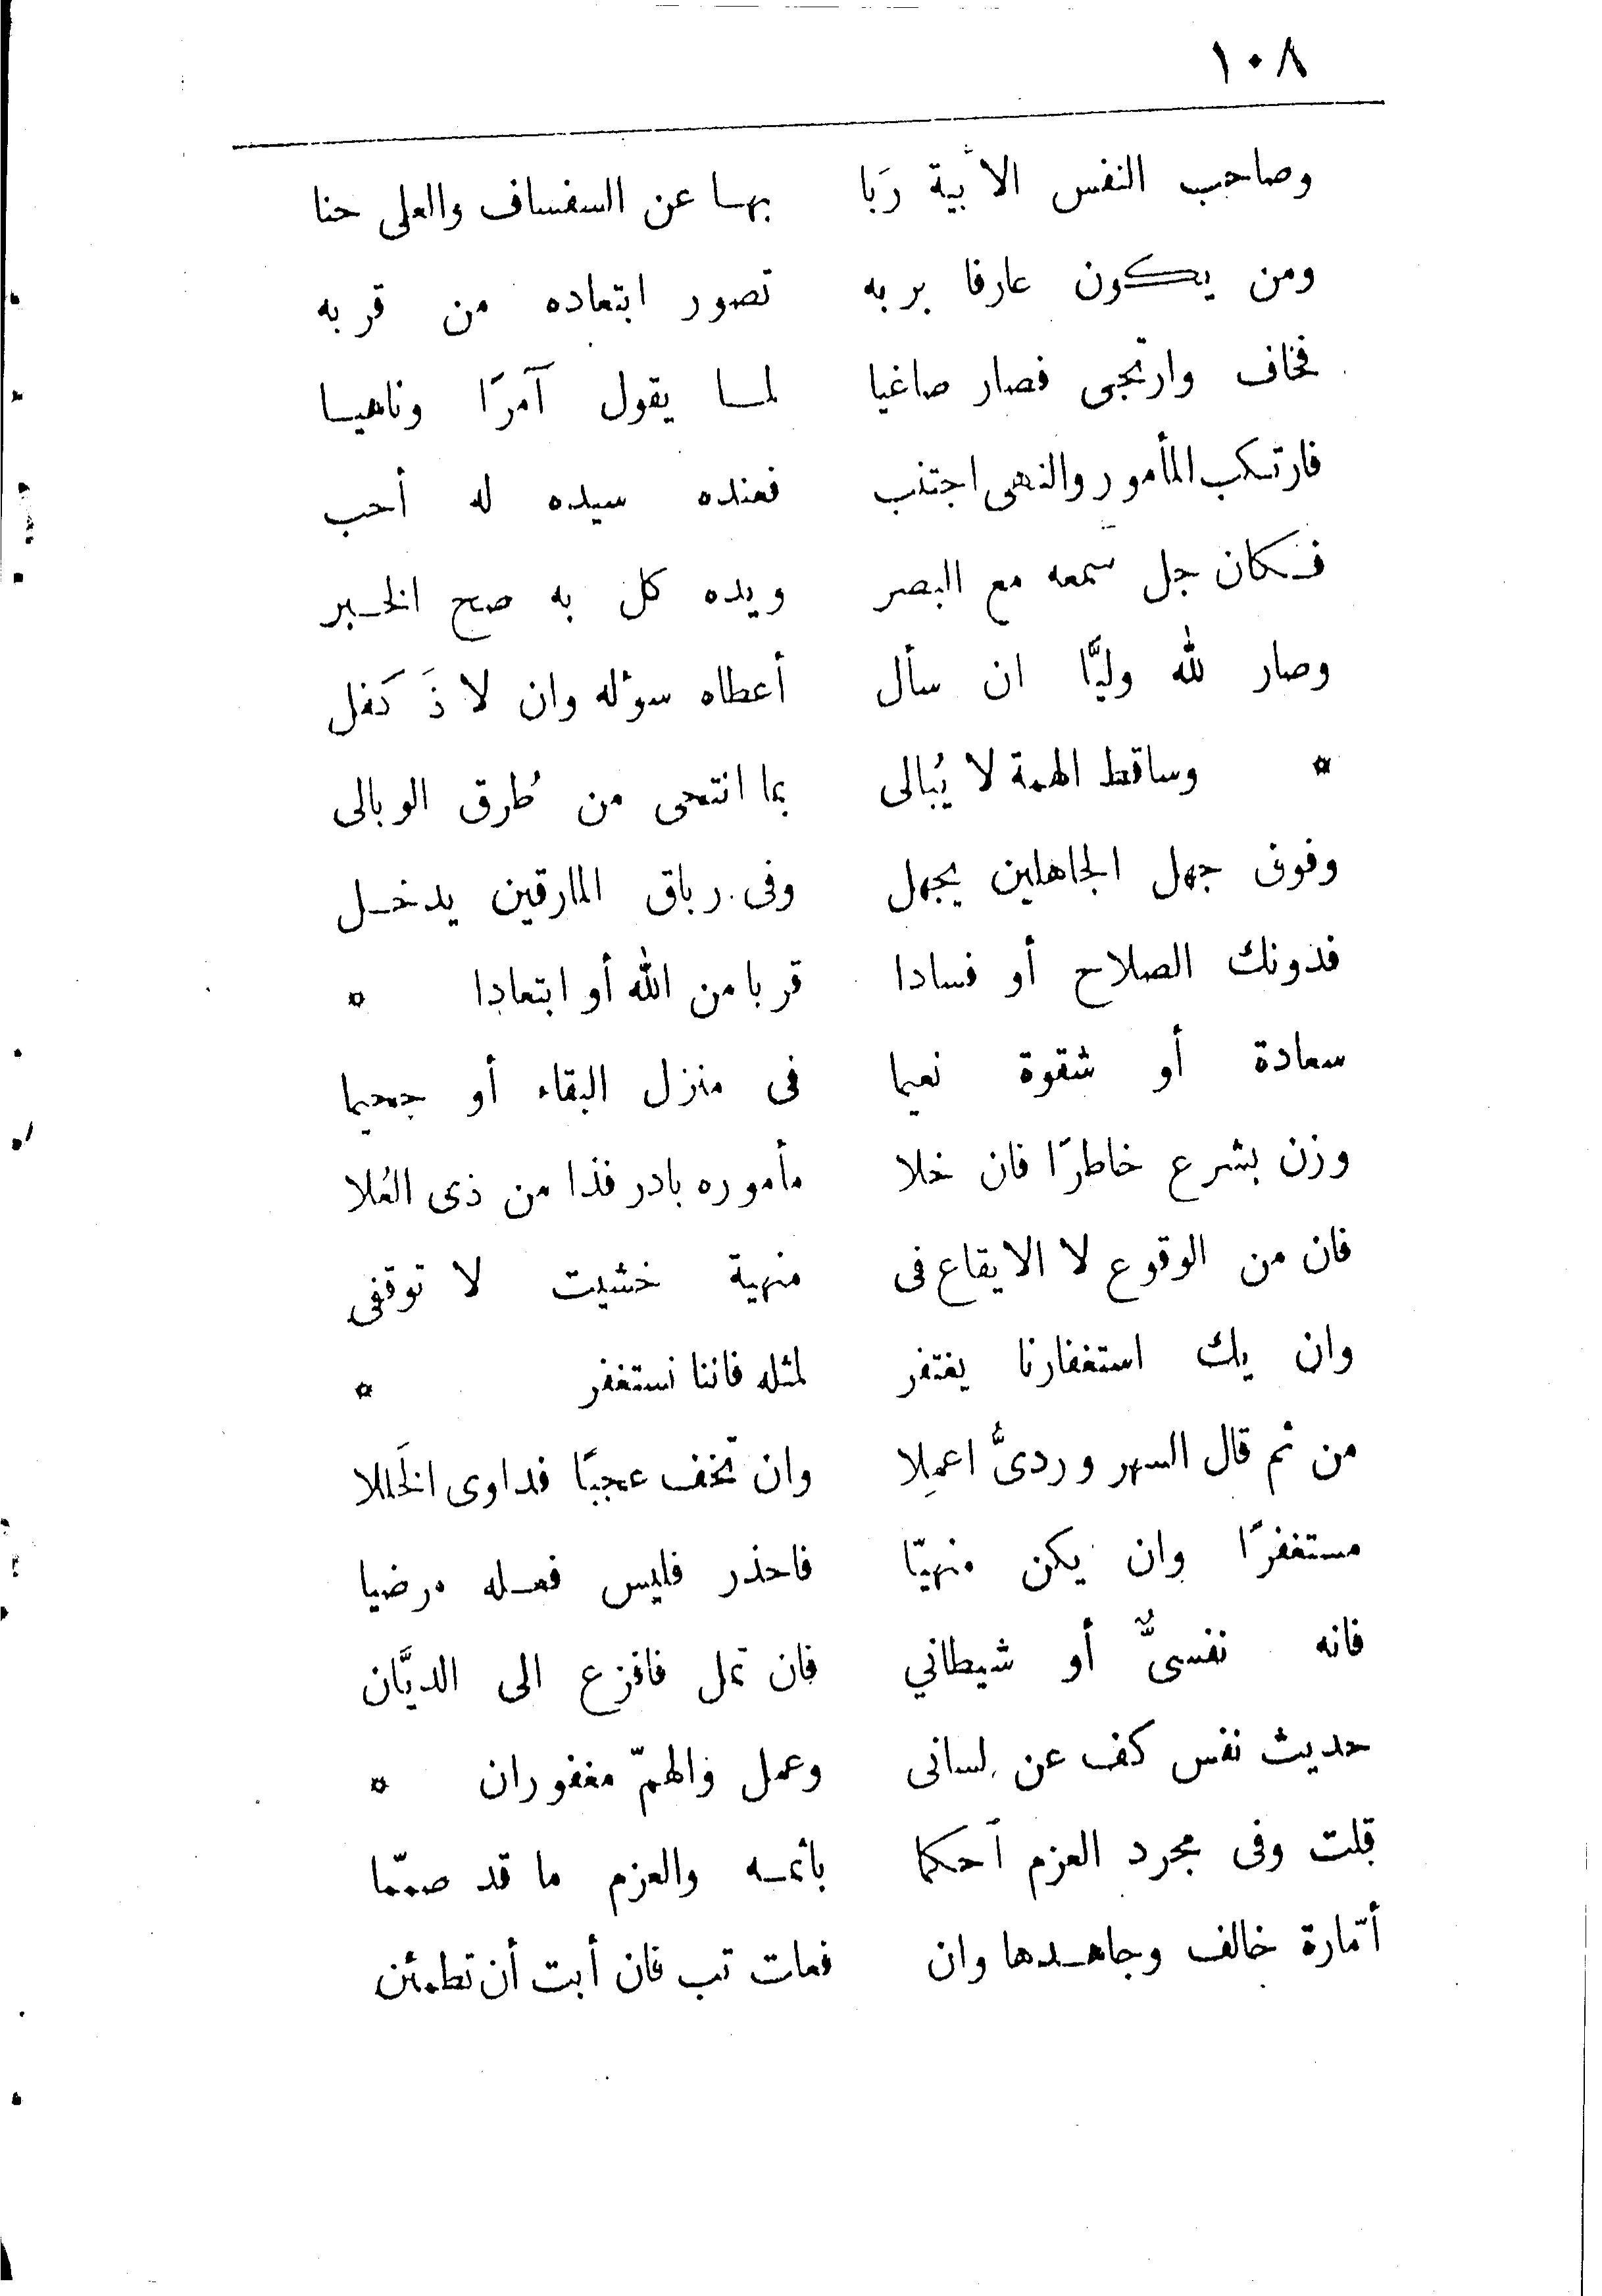 ١٠٨
وصاحب النفس الأبية رَبا بها عن السفساف والعلى حنا
ومن يكون عارفا بربه تصور ابتعاده من قربه
فخاف وارتجى فصار صاغيا لما يقول آمرًا وناهيا
فارتكب المأمور والنهى اجتنب فعنده سيده له أحب
فكان جل سمعه مع البصر ويده كل به صح الخبر
وصار لله وليًّا ان سأل أعطاه سؤله وان لاذَ كفل
* وساقط الهمة لا يُبالى بما انتحى من طُرق الوبالى
وفوق جهل الجاهلين يجهل وفى رباق المارقين يدخل
فدونك الصلاح أو فسادا قربا من الله أو ابتعادا *
سعادة أو شقوة نعيما فى منزل البقاء أو جحيما
وزن بشرع خاطرًا فان خلا مأموره بادر فذا من ذى العُلا
فان من الوقوع لا الايقاع فى منهية خشيت لا توقفى
وان يك استغفارنا يفتقر لمثله فاننا نستغفر *
من ثم قال السهروردىُّ اعمِلا وان تخف عجبًا فداوى الخَللا
مستغفرًا وان يكن منهيّا فاحذر فليس فعله مرضيا
فانه نفسىٌّ أو شيطاني فان تمل فافزع الى الديَّان
حديث نفس كف عن لسانى وعمل والهمّ مغفوران *
قلت وفى مجرد العزم أحكما باثمه والعزم ما قد صمّما
أمّارة خالف وجاهدها وان فعلت تب فان أبت أن تطمئن